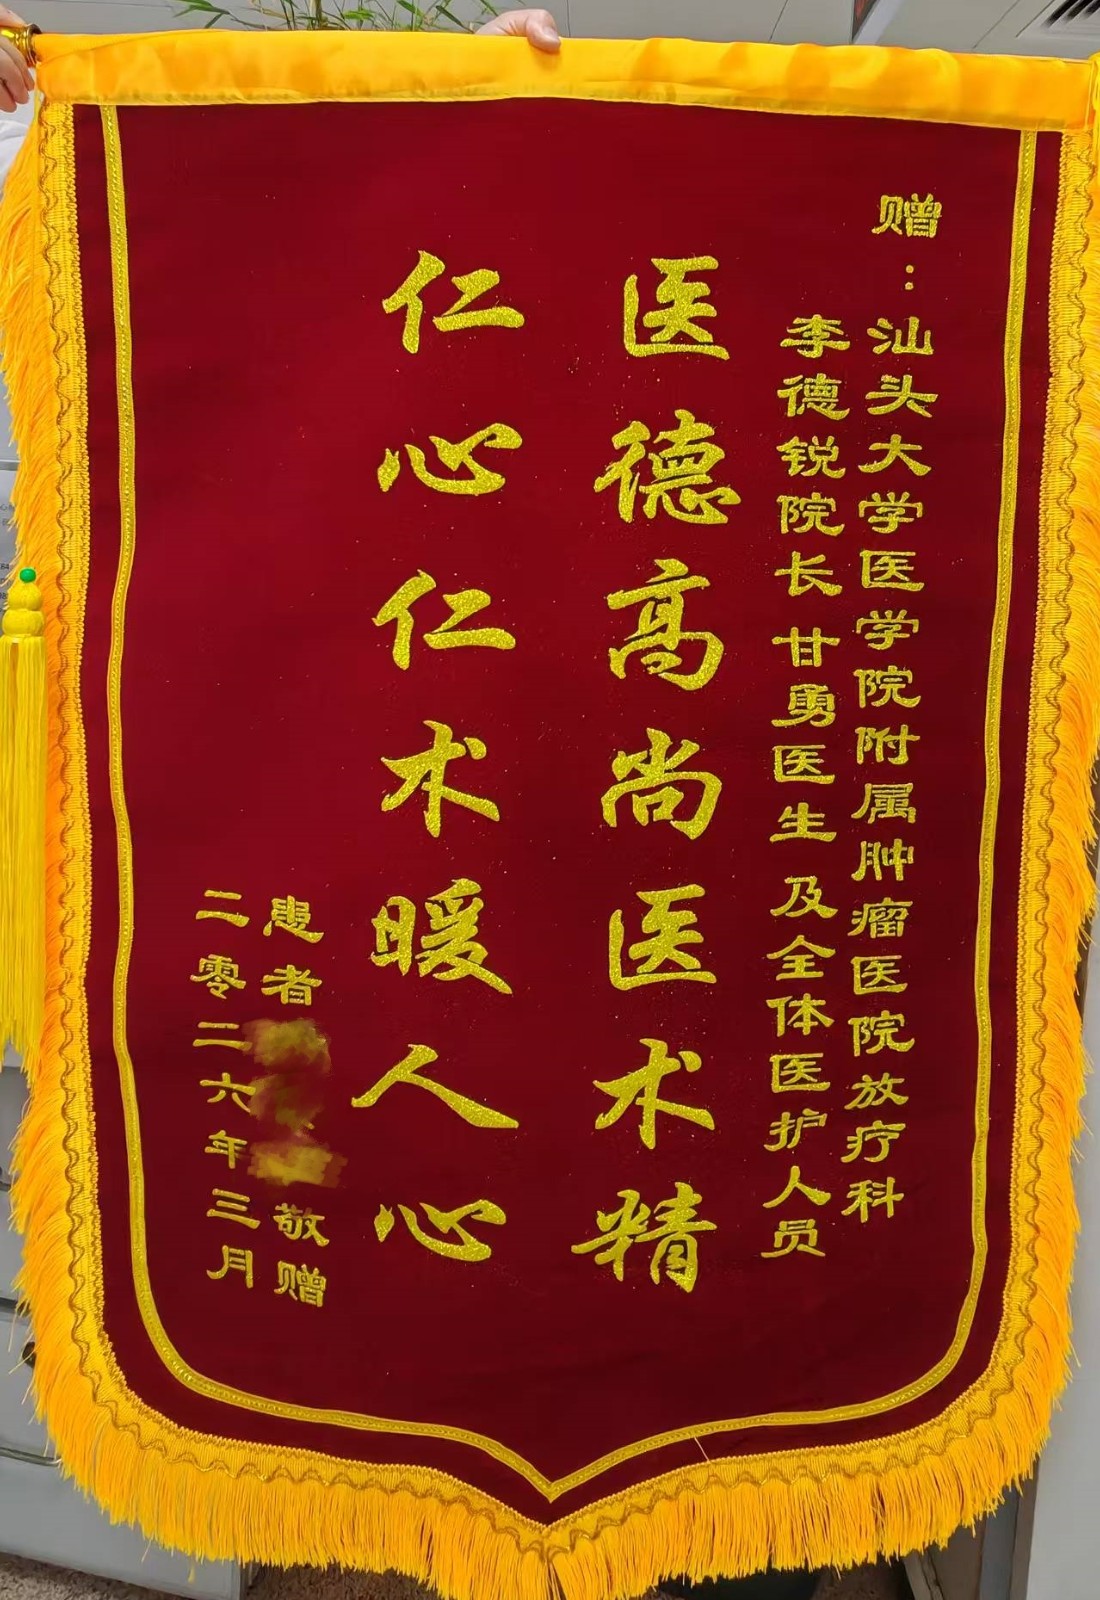 赠：汕头大学医学院附属肿瘤医院放疗科
李德锐院长 甘勇医生 及全体医护人员
医德高尚医术精
仁心仁术暖人心
患者 敬赠
二零二六年三月